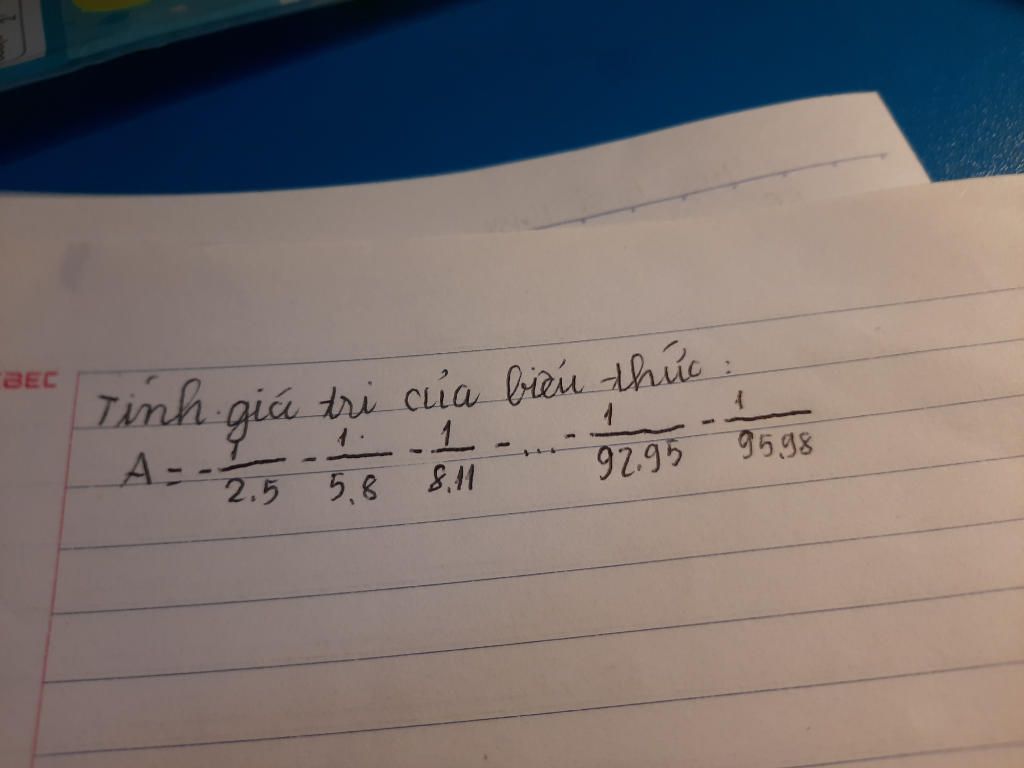 EBEC
Tính giá trị của biểu thức:
A = - 1/2.5 - 1/5.8 - 1/8.11 - ... - 1/92.95 - 1/95.98